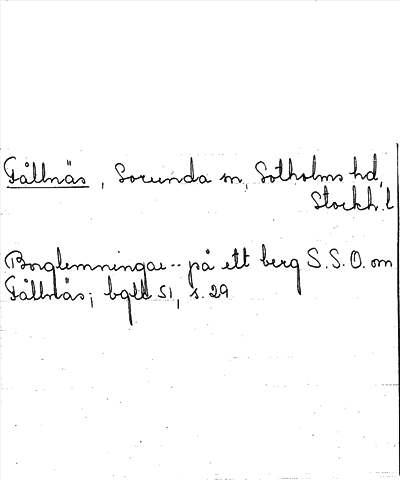 Fållnäs, Sorunda sn, Sotholms hd,
Stockh. l
Borglemningar.. på ett berg S.S.O. om
Fållnäs; bgbl 51, s. 29